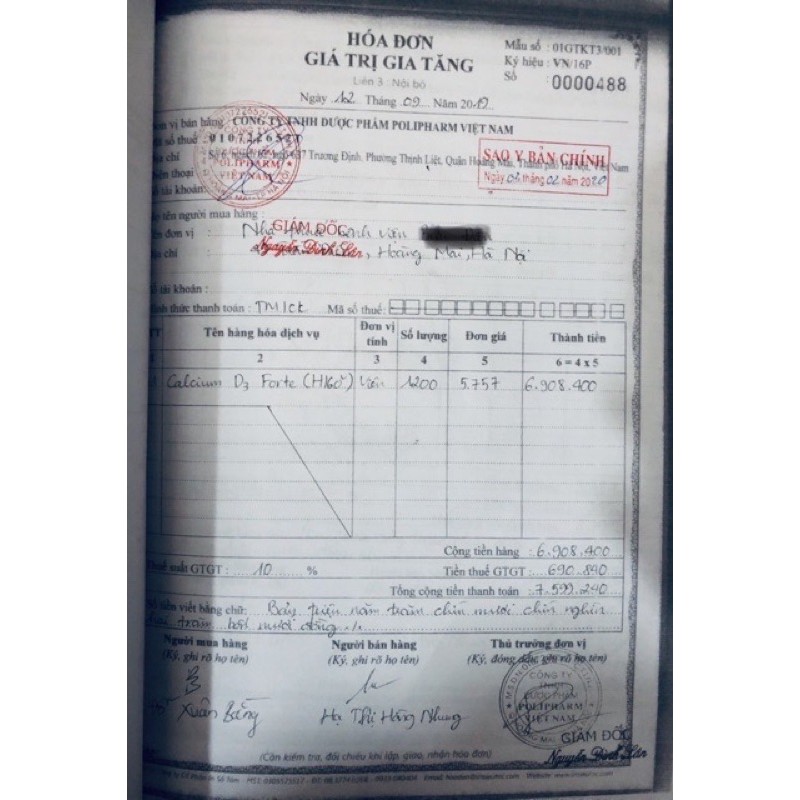 HÓA ĐƠN
GIÁ TRỊ GIA TĂNG
Liên 3 : Nội bộ
Ngày 12 Tháng 09 Năm 2019
Mẫu số : 01GTKT3/001
Ký hiệu : VN/16P
Số 0000488
vị bán hàng CÔNG TY TNHH DƯỢC PHẨM POLIPHARM VIỆT NAM
số thuế
chỉ Trương Định, Phường Thịnh Liệt, Quận Hoàng Mai, Thành phố Hà Nội, Việt Nam
thoại
khoản
POLIPHARM
VIỆT NAM
SAO Y BẢN CHÍNH
Ngày 03 tháng 02 năm 2020
tên người mua hàng :
đơn vị : Nhà bệnh viện
GIÁM ĐỐC
Nguyễn Đình Lân
chỉ : Hoàng Mai, Hà Nội
tài khoản :
thức thanh toán : TM/ck Mã số thuế:
Tên hàng hóa dịch vụ Đơn vị tính Số lượng Đơn giá Thành tiền
2 3 4 5 6 = 4 x 5
Calcium D3 Forte (H/60v) Viên 1200 5.757 6.908.400
Cộng tiền hàng : 6.908.400
suất GTGT : 10 % Tiền thuế GTGT : 690.840
Tổng cộng tiền thanh toán : 7.599.240
tiền viết bằng chữ: Bảy triệu năm trăm chín mươi chín nghìn
trăm bốn mươi đồng ./.
Người mua hàng Người bán hàng Thủ trưởng đơn vị
(Ký, ghi rõ họ tên) (Ký, ghi rõ họ tên) (Ký, đóng dấu, ghi rõ họ tên)
Xuân Bằng Hạ Thị Hồng Nhung
CÔNG TY
TNHH
DƯỢC PHẨM
POLIPHARM
VIỆT NAM
GIÁM ĐỐC
Nguyễn Đình Lân
(Cần kiểm tra, đối chiếu khi lập, giao, nhận hóa đơn)